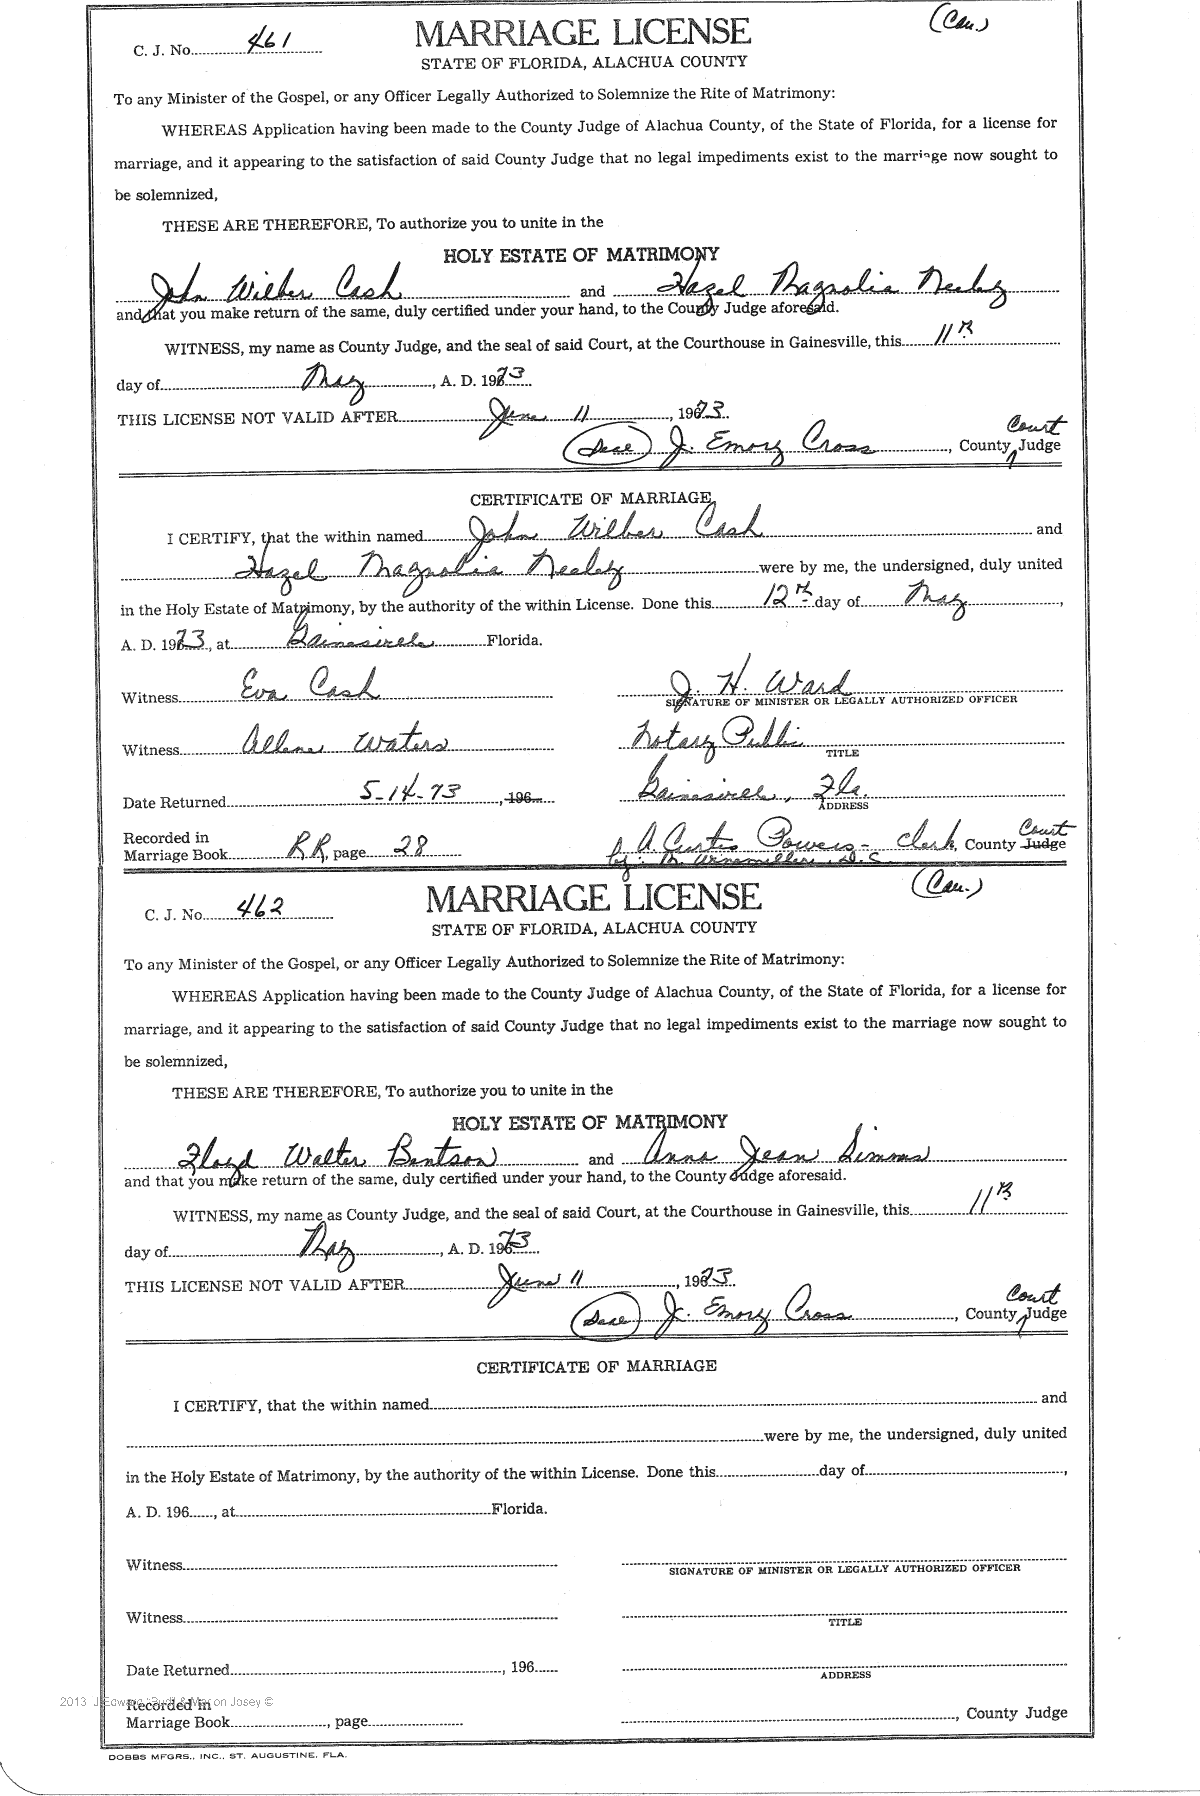 C. J. No. 461 MARRIAGE LICENSE (Cau.)
STATE OF FLORIDA, ALACHUA COUNTY
To any Minister of the Gospel, or any Officer Legally Authorized to Solemnize the Rite of Matrimony:
WHEREAS Application having been made to the County Judge of Alachua County, of the State of Florida, for a license for
marriage, and it appearing to the satisfaction of said County Judge that no legal impediments exist to the marriage now sought to
be solemnized,
THESE ARE THEREFORE, To authorize you to unite in the
HOLY ESTATE OF MATRIMONY
John Wilber Cash and Hazel Magnolia Neeley
and that you make return of the same, duly certified under your hand, to the County Judge aforesaid.
WITNESS, my name as County Judge, and the seal of said Court, at the Courthouse in Gainesville, this 11th
day of May, A. D. 1973.
THIS LICENSE NOT VALID AFTER June 11, 1973.
(Seal) J. Emory Cross, County Court Judge
CERTIFICATE OF MARRIAGE
I CERTIFY, that the within named John Wilber Cash and
Hazel Magnolia Neeley were by me, the undersigned, duly united
in the Holy Estate of Matrimony, by the authority of the within License. Done this 12th day of May,
A. D. 1973, at Gainesville Florida.
Witness Eva Cash J. H. Ward
SIGNATURE OF MINISTER OR LEGALLY AUTHORIZED OFFICER
Witness Allene Waters Notary Public
TITLE
Date Returned 5-14-73, 196 Gainesville, Fla.
ADDRESS
Recorded in
Marriage Book RR, page 28 A. Curtis Powers - Clerk, County Court Judge
by: M. D.C.
C. J. No. 462 MARRIAGE LICENSE (Cau.)
STATE OF FLORIDA, ALACHUA COUNTY
To any Minister of the Gospel, or any Officer Legally Authorized to Solemnize the Rite of Matrimony:
WHEREAS Application having been made to the County Judge of Alachua County, of the State of Florida, for a license for
marriage, and it appearing to the satisfaction of said County Judge that no legal impediments exist to the marriage now sought to
be solemnized,
THESE ARE THEREFORE, To authorize you to unite in the
HOLY ESTATE OF MATRIMONY
Floyd Walter Bentson and Anna Jean Simms
and that you make return of the same, duly certified under your hand, to the County Judge aforesaid.
WITNESS, my name as County Judge, and the seal of said Court, at the Courthouse in Gainesville, this 11th
day of May, A. D. 1973.
THIS LICENSE NOT VALID AFTER June 11, 1973.
(Seal) J. Emory Cross, County Court Judge
CERTIFICATE OF MARRIAGE
I CERTIFY, that the within named and
were by me, the undersigned, duly united
in the Holy Estate of Matrimony, by the authority of the within License. Done this day of ,
A. D. 196 , at Florida.
Witness
SIGNATURE OF MINISTER OR LEGALLY AUTHORIZED OFFICER
Witness
TITLE
Date Returned , 196
ADDRESS
2013 J Edward "Bud" & Marion Josey ©
Recorded in
Marriage Book , page , County Judge
DOBBS MFGRS., INC., ST. AUGUSTINE, FLA.